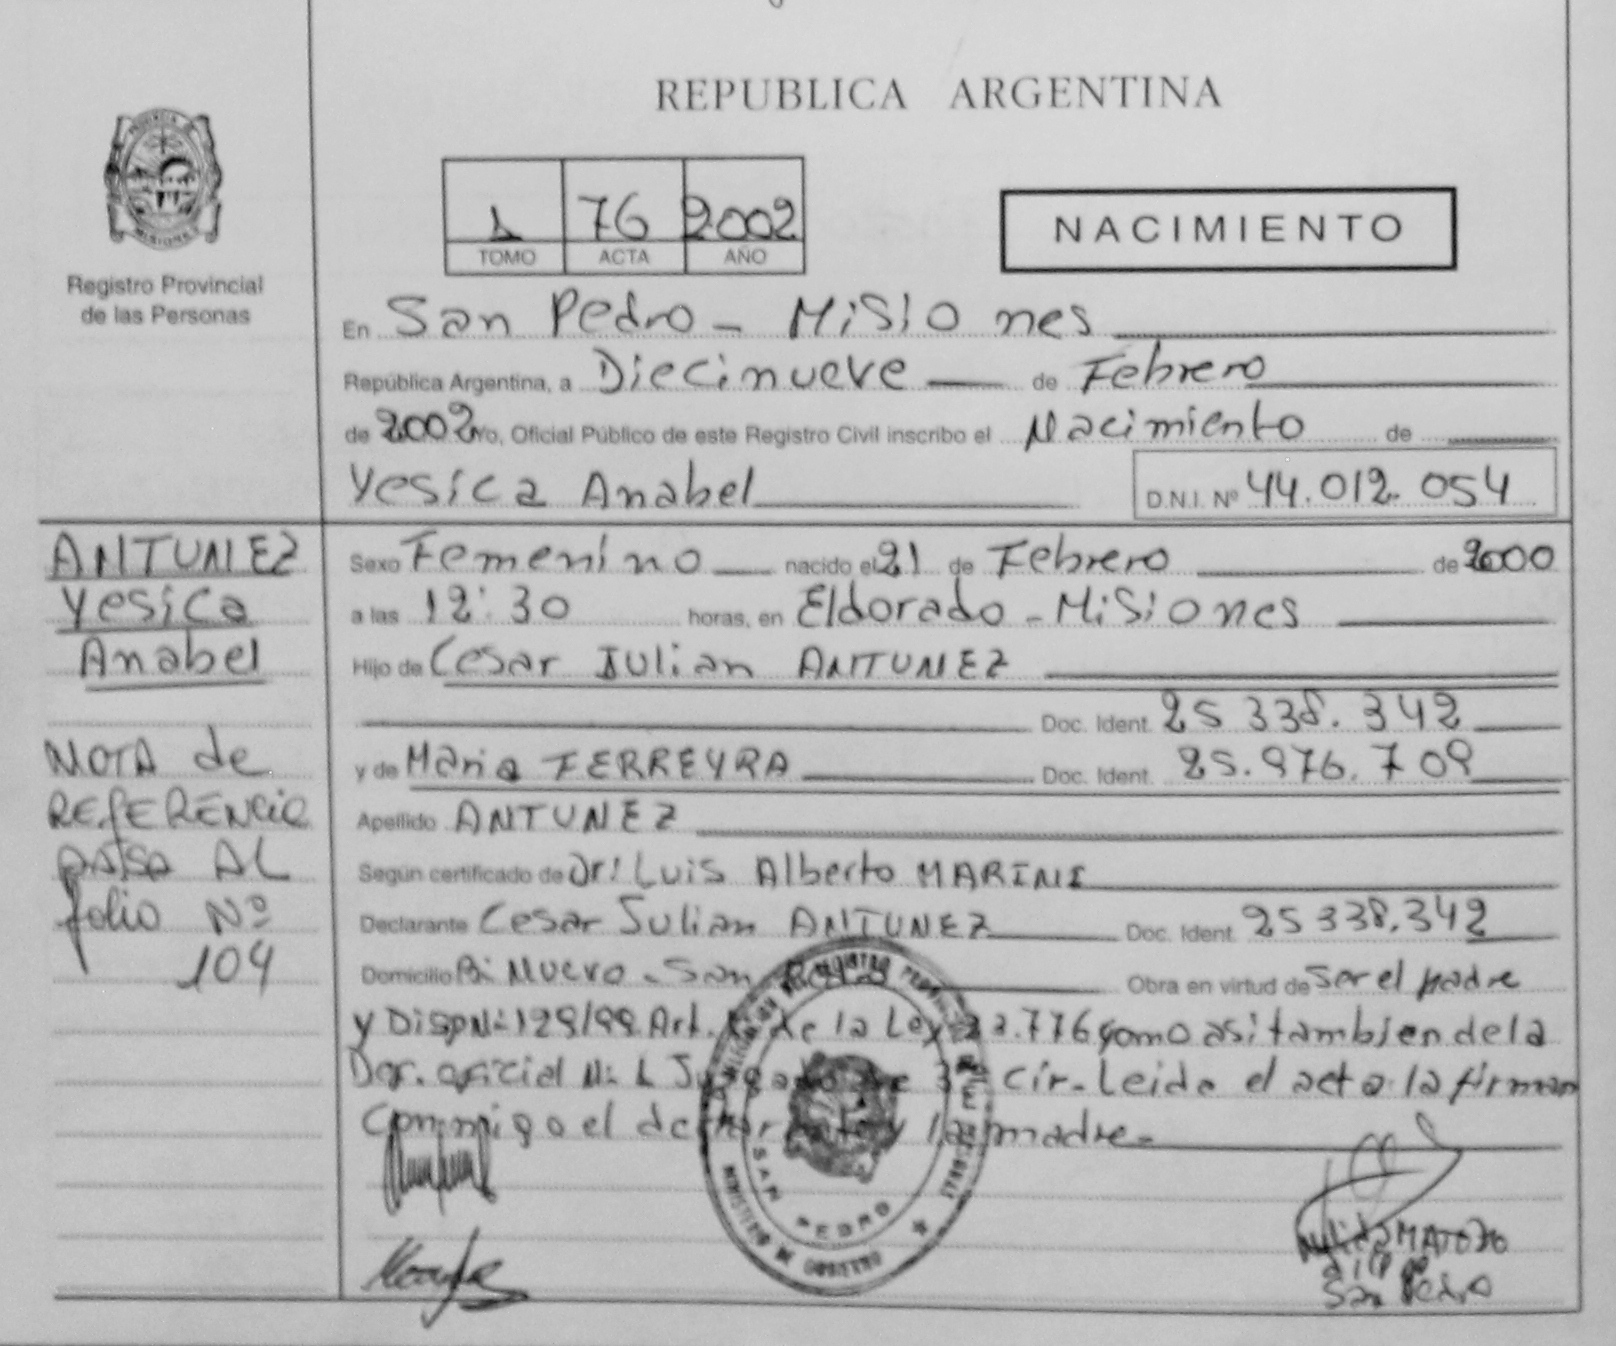 REPUBLICA ARGENTINA
PROVINCIA DE
MISIONES
Registro Provincial
de las Personas
1 76 2002
TOMO ACTA AÑO
NACIMIENTO
En San Pedro - Misiones
República Argentina, a Diecinueve de Febrero
de 2002 Yo, Oficial Público de este Registro Civil inscribo el Nacimiento de
Yesica Anabel D.N.I. Nº 44.012.054
ANTUNEZ
Yesica
Anabel
NOTA de
REFERENCIA
PASA AL
folio Nº
104
Sexo Femenino nacido el 21 de Febrero de 2000
a las 12:30 horas, en Eldorado - Misiones
Hijo de Cesar Julian ANTUNEZ
Doc. Ident. 25 338.342
y de Maria FERREYRA Doc. Ident. 25.976.709
Apellido ANTUNEZ
Según certificado de Dr: Luis Alberto MARINI
Declarante Cesar Julian ANTUNEZ Doc. Ident. 25 338.342
Domicilio Bi Nuevo - San Obra en virtud de ser el padre
y Disp Nº 129/99 Art. de la Ley 22.776 como asi tambien de la
Def. oficial Nº 1 Juzgado de 3ª Cir. Leida el acta la firman
Conmigo el y la madre -
SAN PEDRO
MINISTERIO DE GOBIERNO
MATOZO
San Pedro